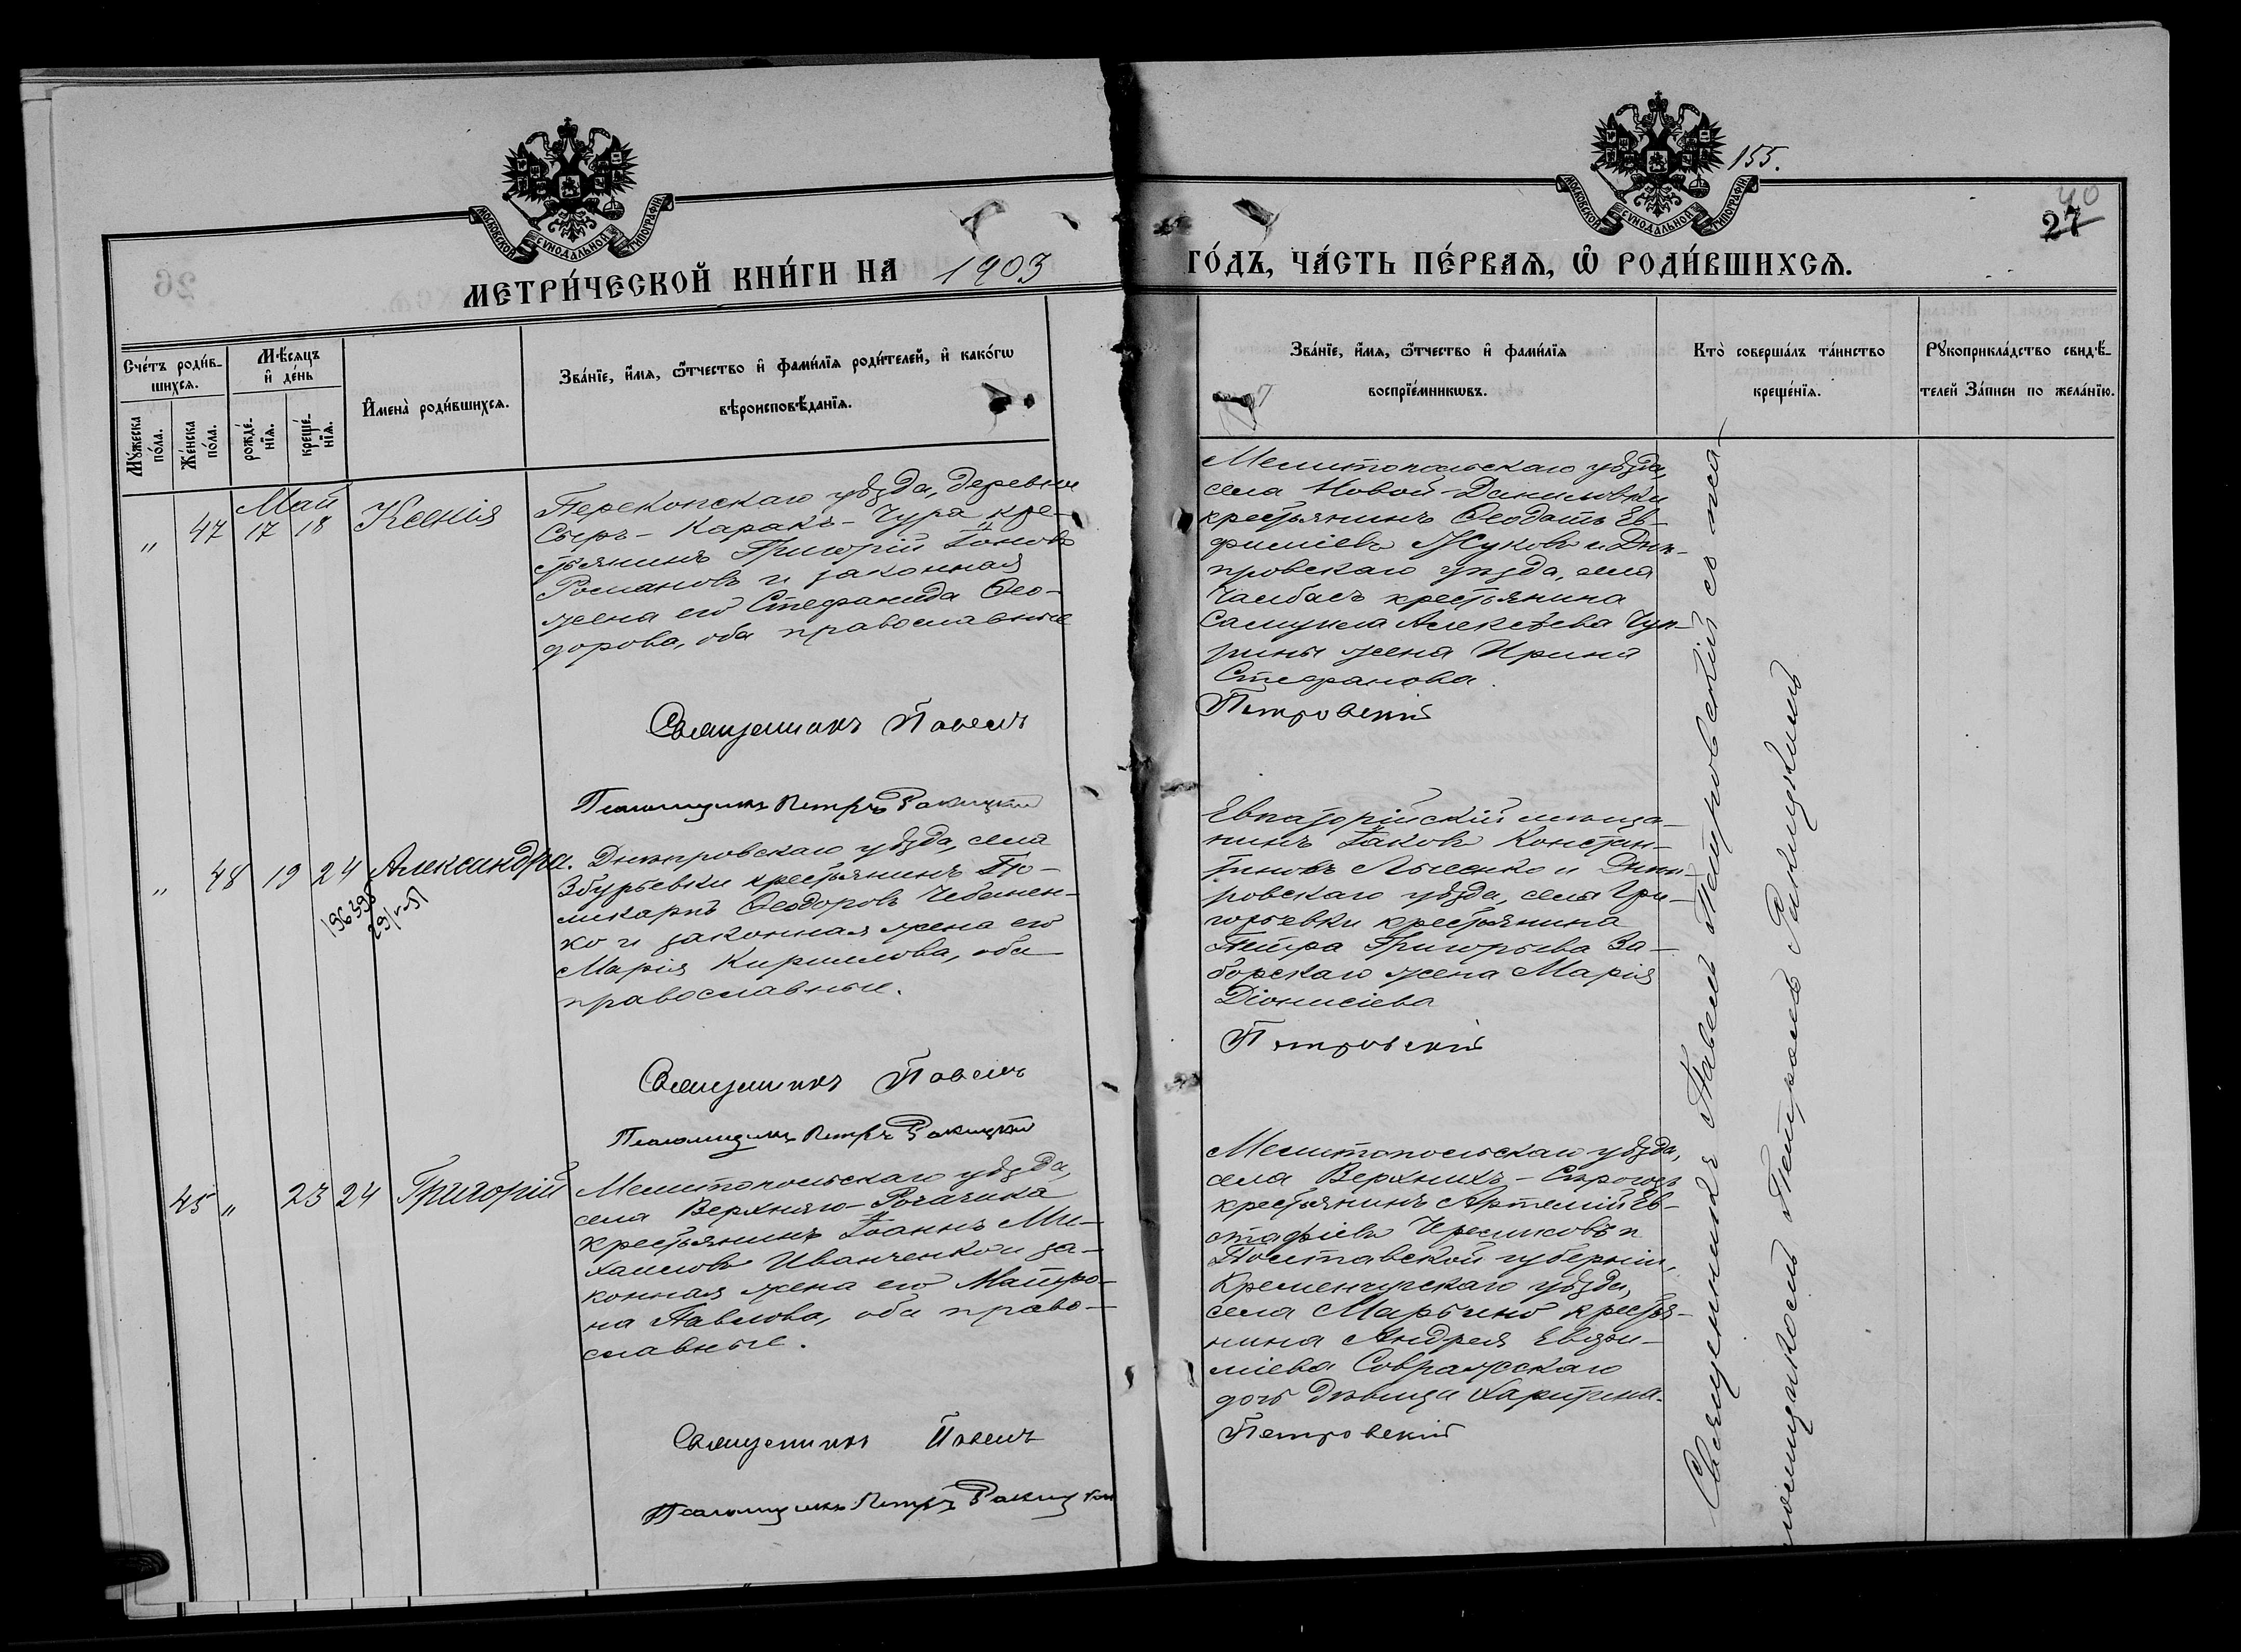 МОСКОВСКОЙ СѴНОДАЛЬНОЙ ТИПОГРАФІИ
МОСКОВСКОЙ СѴНОДАЛЬНОЙ ТИПОГРАФІИ
155.
40
27
МЕТРИ́ЧЕСКОЙ КНИ́ГИ НА 1903
ГО́ДЪ, ЧА́СТЬ ПЕ́РВАѦ, Ѡ РОДИ́ВШИХСѦ.
Сче́тъ роди́в-
шихсѧ.
Мꙋ́жеска
по́ла.
Же́нска
по́ла.
Мѣ́сѧцъ
и҆ де́нь
рожде́-
нїѧ.
креще́-
нїѧ.
И҆мена̀ роди́вшихсѧ.
Зва́нїе, и҆́мѧ, ѻ҆́тчество и҆ фами́лїѧ роди́телей, и҆ како́гѡ
вѣроисповѣ́данїѧ.
Зва́нїе, и҆́мѧ, ѻ҆́тчество и҆ фами́лїѧ
воспрїе́мникѡвъ.
Кто̀ соверша́лъ та́инство
креще́нїѧ.
Рꙋкоприкла́дство свидѣ́-
телей За́писи по жела́нїю.
Май
" 47 17 18 Ксенія
Перекопскаго уѣзда, деревни
Сыръ-Каракъ-Чура кре-
стьянинъ Григорій Іоновъ
Романовъ и законная
жена его Стефанида Ѳео-
дорова, оба православные
Священникъ Павелъ
Псаломщикъ Петръ Ракицкій
Мелитопольскаго уѣзда,
села Новой-Даниловки
крестьянинъ Ѳеодотъ Ев-
фиміевъ Жуковъ и Днѣ-
провскаго уѣзда, села
Чалбасъ крестьянина
Самуила Алексѣева Чуп-
рины жена Ирина
Стефанова.
Петровскій
" 48 19 24 Александра.
196395
Днѣпровскаго уѣзда, села
Збурьевки крестьянинъ По-
ликарпъ Ѳеодоровъ Чебанен-
ко и законная жена его
Марія Кириллова, оба
православные.
Священникъ Павелъ
Псаломщикъ Петръ Ракицкій
Евпаторійскій мѣща-
нинъ Іаковъ Констан-
тиновъ Лысенко и Днѣп-
ровскаго уѣзда, села Гри-
горьевки крестьянина
Петра Григорьева За-
борскаго жена Марія
Діонисіева
Петровскій
45 " 23 24 Григорій
Мелитопольскаго уѣзда,
села Верхняго-Рогачика
крестьянинъ Іоаннъ Ми-
хаиловъ Иванченко и за-
конная жена его Матро-
на Павлова, оба право-
славные.
Священникъ Павелъ
Псаломщикъ Петръ Ракицкій
Мелитопольскаго уѣзда,
села Верхнихъ-Сѣрогозъ
крестьянинъ Артемій Ев-
стафіевъ Чересиковъ и
Полтавской губерніи,
Кременчугскаго уѣзда,
села Марьино крестья-
нина Андрея Евѳи-
міева
дочь дѣвица Харитина.
Петровскій
Священникъ Павелъ Петровскій съ пса-
ломщикомъ Петромъ Ракицкимъ